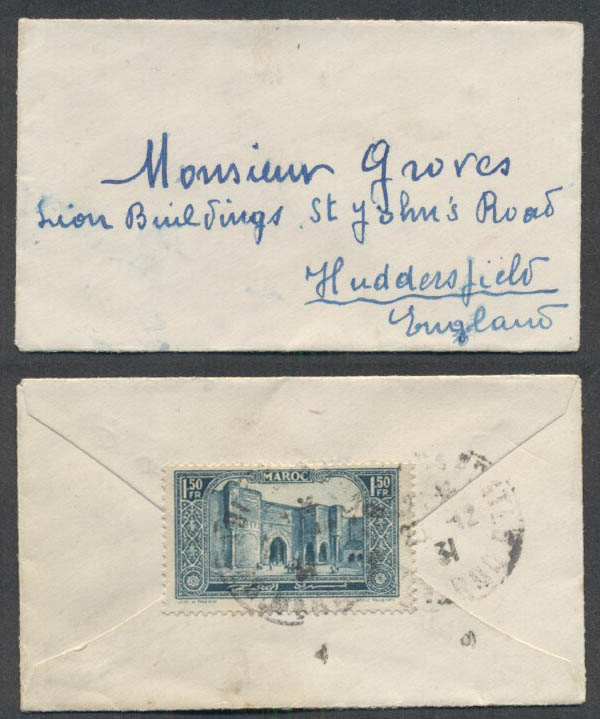 Monsieur Groves
Lion Buildings St John's Road
Huddersfield
England
MAROC
1.50 FR 1.50 FR
12
31